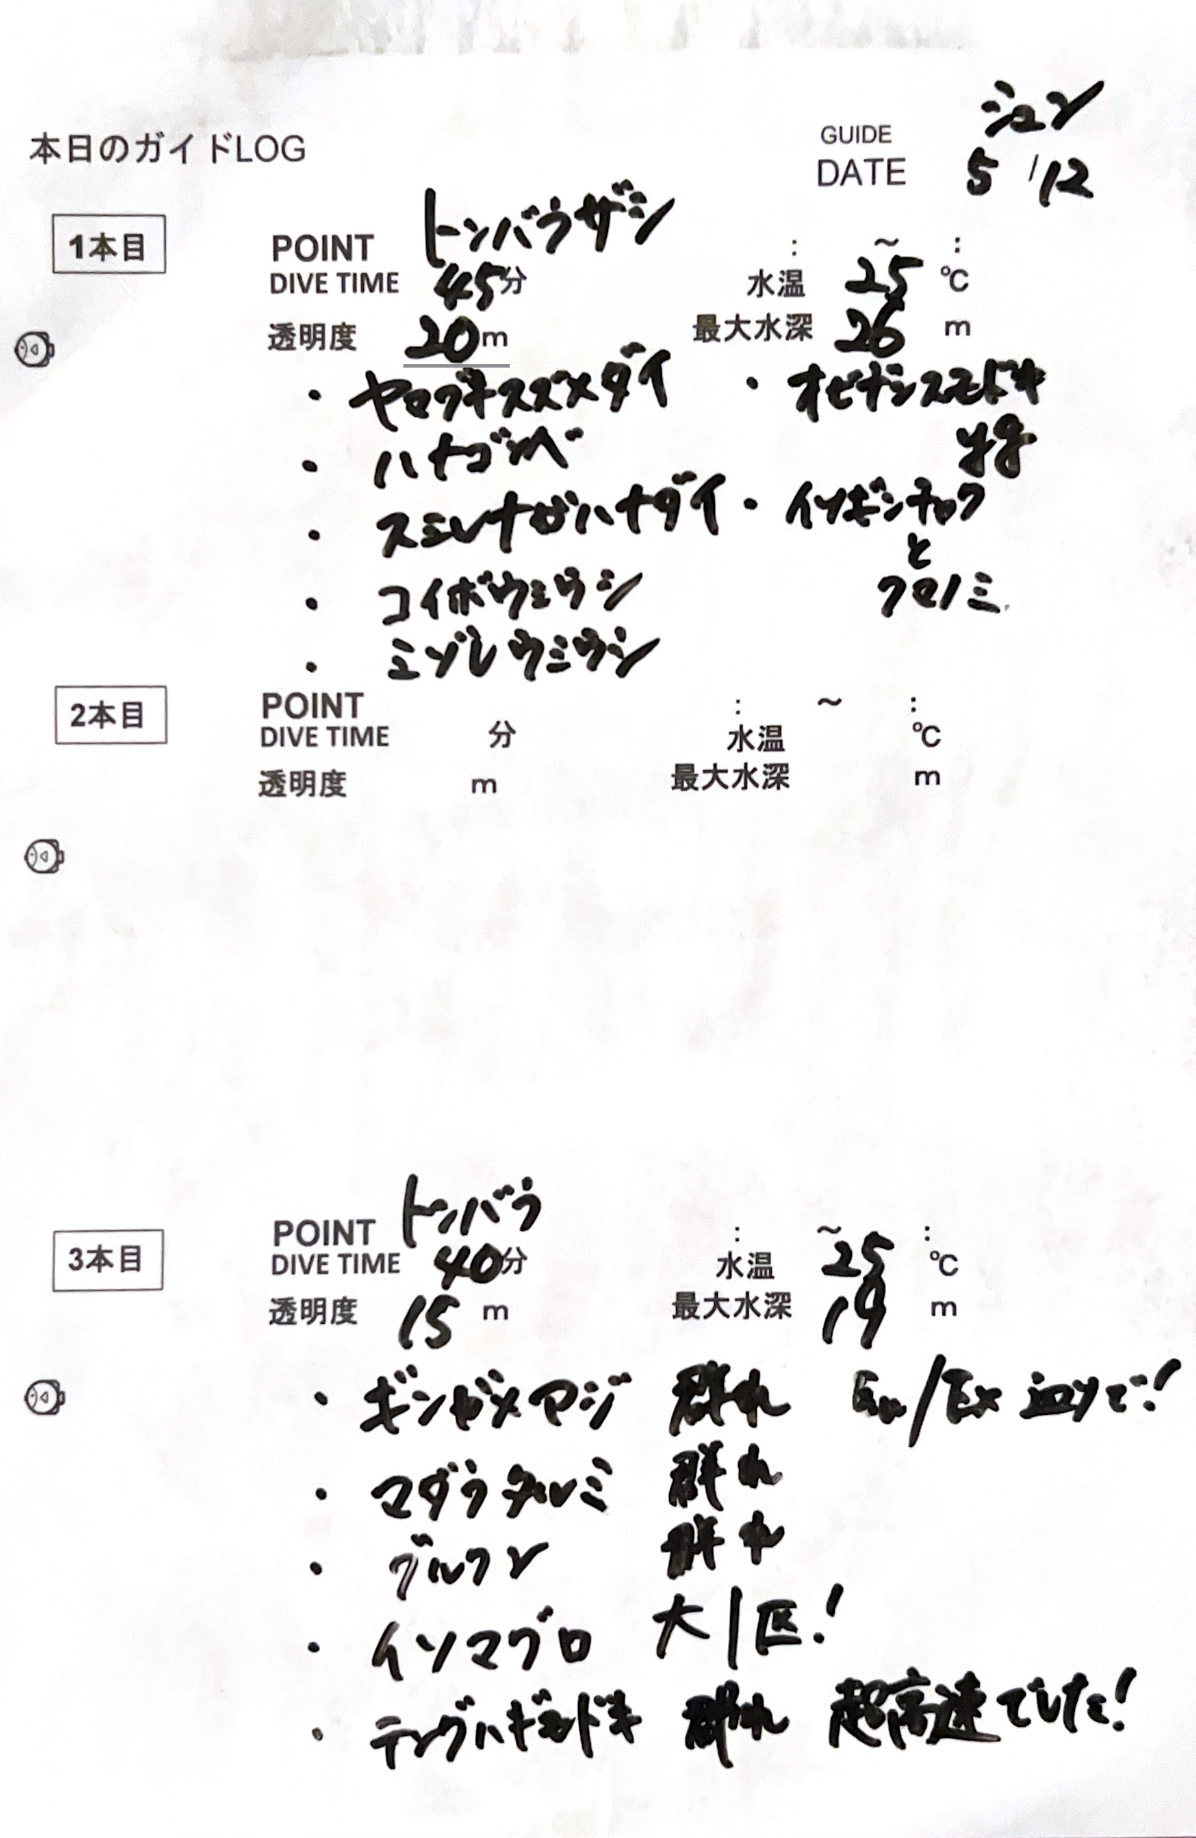 ジュン
本日のガイドLOG
GUIDE
DATE 5/12
1本目
POINT トンバラザシ : ～ :
DIVE TIME 45分 水温 25 ℃
透明度 20m 最大水深 26 m
・ヤマブキスズメダイ ・オビテンスモドキ
・ハナゴンベ yg
・スミレナガハナダイ ・イソギンチャク
と
・コイボウミウシ クマノミ
・ミゾレウミウシ
2本目
POINT : ～ :
DIVE TIME 分 水温 ℃
透明度 m 最大水深 m
3本目
POINT トンバラ : ～ :
DIVE TIME 40分 水温 25 ℃
透明度 15 m 最大水深 19 m
・ギンガメアジ 群れ En/Ex でー!
・マダラタルミ 群れ
・グルクン 群れ
・イソマグロ 大1匹!
・テングハギモドキ 群れ 超高速でした!